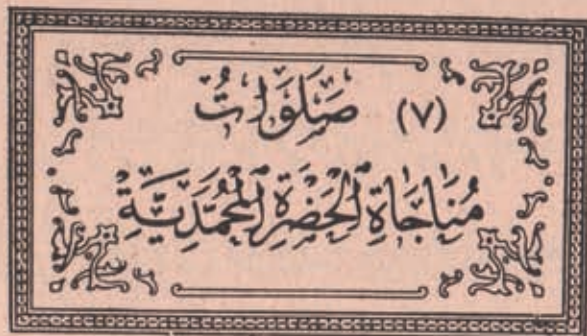 (٧) صَلَوَاتُ
مُنَاجَاةِ الْحَضْرَةِ الْمُحَمَّدِيَّةِ